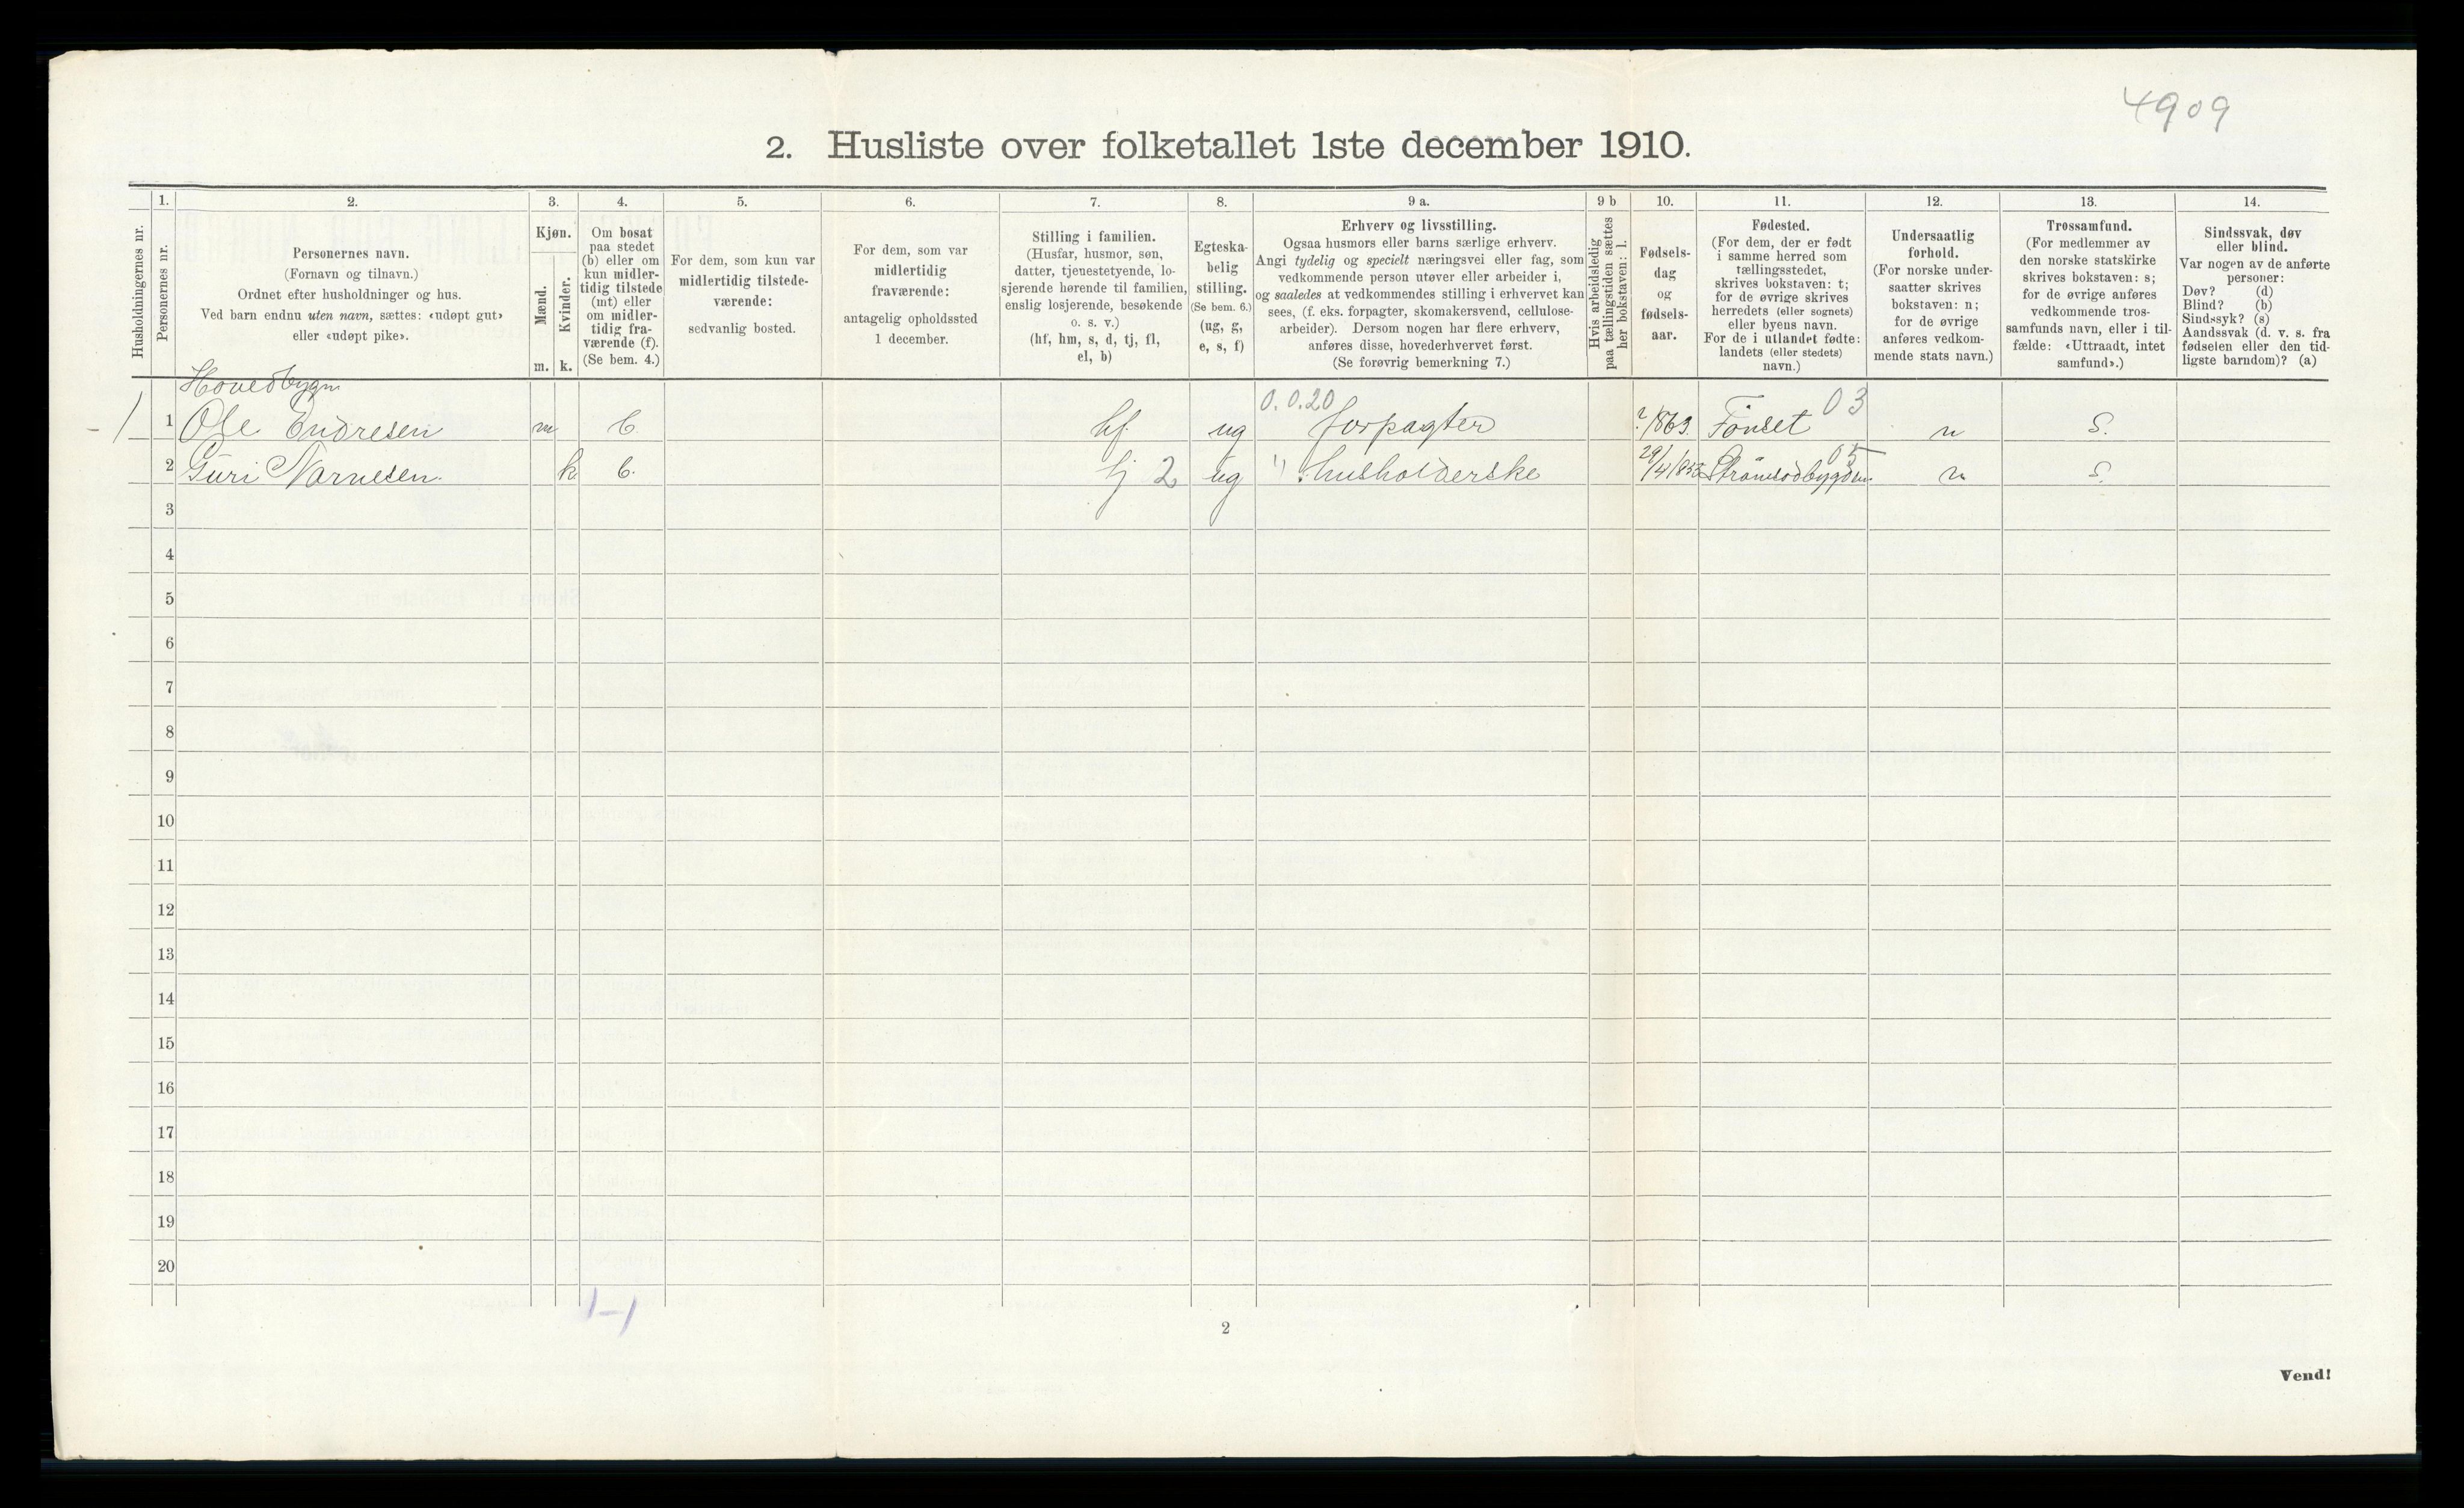 4909
2. Husliste over folketallet 1ste december 1910.
Husholdningernes nr.
1.
Personernes nr.
2.
Personernes navn.
(Fornavn og tilnavn.)
Ordnet efter husholdninger og hus.
Ved barn endnu uten navn, sættes: «udøpt gut»
eller «udøpt pike».
3.
Kjøn.
Mænd.
Kvinder.
m. k.
4.
Om bosat
paa stedet
(b) eller om
kun midler-
tidig tilstede
(mt) eller
om midler-
tidig fra-
værende (f).
(Se bem. 4.)
5.
For dem, som kun var
midlertidig tilstede-
værende:
sedvanlig bosted.
6.
For dem, som var
midlertidig
fraværende:
antagelig opholdssted
1 december.
7.
Stilling i familien.
(Husfar, husmor, søn,
datter, tjenestetyende, lo-
sjerende hørende til familien,
enslig losjerende, besøkende
o. s. v.)
(hf, hm, s, d, tj, fl,
el, b)
8.
Egteska-
belig
stilling.
(Se bem. 6.)
(ug, g,
e, s, f)
9 a.
Erhverv og livsstilling.
Ogsaa husmors eller barns særlige erhverv.
Angi tydelig og specielt næringsvei eller fag, som
vedkommende person utøver eller arbeider i,
og saaledes at vedkommendes stilling i erhvervet kan
sees, (f. eks. forpagter, skomakersvend, cellulose-
arbeider). Dersom nogen har flere erhverv,
anføres disse, hovederhvervet først.
(Se forøvrig bemerkning 7.)
9 b
Hvis arbeidsledig
paa tællingstiden sættes
her bokstaven: l.
10.
Fødsels-
dag
og
fødsels-
aar.
11.
Fødested.
(For dem, der er født
i samme herred som
tællingsstedet,
skrives bokstaven: t;
for de øvrige skrives
herredets (eller sognets)
eller byens navn.
For de i utlandet fødte:
landets (eller stedets)
navn.)
12.
Undersaatlig
forhold.
(For norske under-
saatter skrives
bokstaven: n;
for de øvrige
anføres vedkom-
mende stats navn.)
13.
Trossamfund.
(For medlemmer av
den norske statskirke
skrives bokstaven: s;
for de øvrige anføres
vedkommende tros-
samfunds navn, eller i til-
fælde: «Uttraadt, intet
samfund».)
14.
Sindssvak, døv
eller blind.
Var nogen av de anførte
personer:
Døv? (d)
Blind? (b)
Sindssyk? (s)
Aandssvak (d. v. s. fra
fødselen eller den tid-
ligste barndom)? (a)
Hovedbygn
0.0.20 03
1 Ole Endresen m b hf ug forpagter ?/1863. Tönset n S.
05
2 Guri Narnesen. k b. tj 2 ug husholderske 29/4/1853 n S.
3
4
5
6
7
8
9
10
11
12
13
14
15
16
17
18
19
20
1–1
2
Vend!